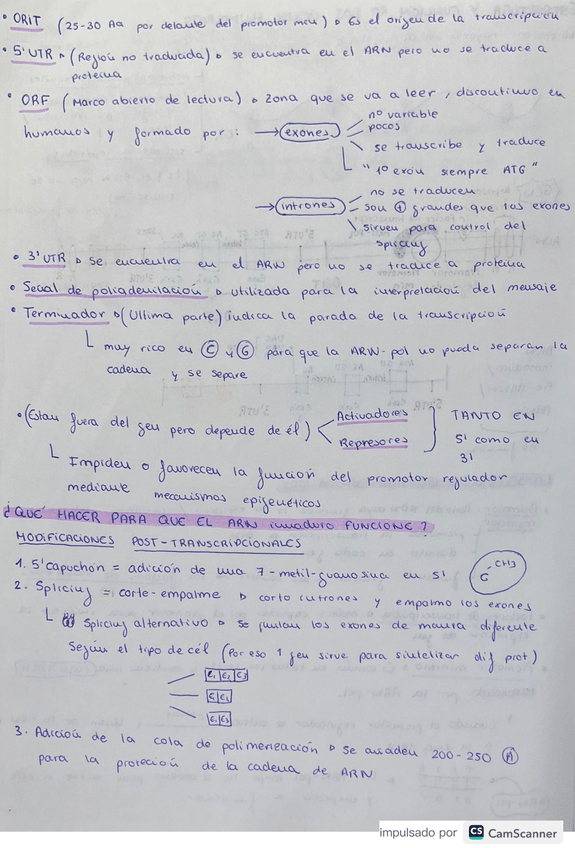 • ORIT (25-30 Aa por delante del promotor mcu) ▹ Es el origen de la transcripción
• 5'UTR ▹ (Región no traducida) ▹ se encuentra en el ARN pero no se traduce a
proteína
• ORF (Marco abierto de lectura) ▹ zona que se va a leer, discontinuo en
humanos y formado por: → exones
nº variable
pocos
se transcribe y traduce
" 1º exón siempre ATG "
→ intrones
no se traducen
son + grandes que los exones
sirven para control del
splicing
• 3'UTR ▹ se encuentra en el ARN pero no se traduce a proteína
• Señal de poliadenilación ▹ utilizada para la interpretación del mensaje
• Terminador ▹ (Última parte) indica la parada de la transcripción
muy rico en C y G para que la ARN-pol no pueda separan la
cadena y se separe
• (Están fuera del gen pero depende de él)
Activadores
Represores
TANTO EN
5' como en
3'
Impiden o favorecen la función del promotor regulador
mediante mecanismos epigenéticos
¿QUÉ HACER PARA QUE EL ARN inmaduro FUNCIONE?
MODIFICACIONES POST-TRANSCRIPCIONALES
1. 5'capuchón = adición de una 7-metil-guanosina en 5'
G CH3
2. Splicing = corte-empalme ▹ corto intrones y empalmo los exones
Splicing alternativo ▹ se juntan los exones de manera diferente
según el tipo de cél (Por eso 1 gen sirve para sintetizar dif prot)
E1|E2|E3
E1|E2
E1|E3
3. Adición de la cola de polimerización ▹ se añaden 200-250 A
para la protección de la cadena de ARN
impulsado por CS CamScanner